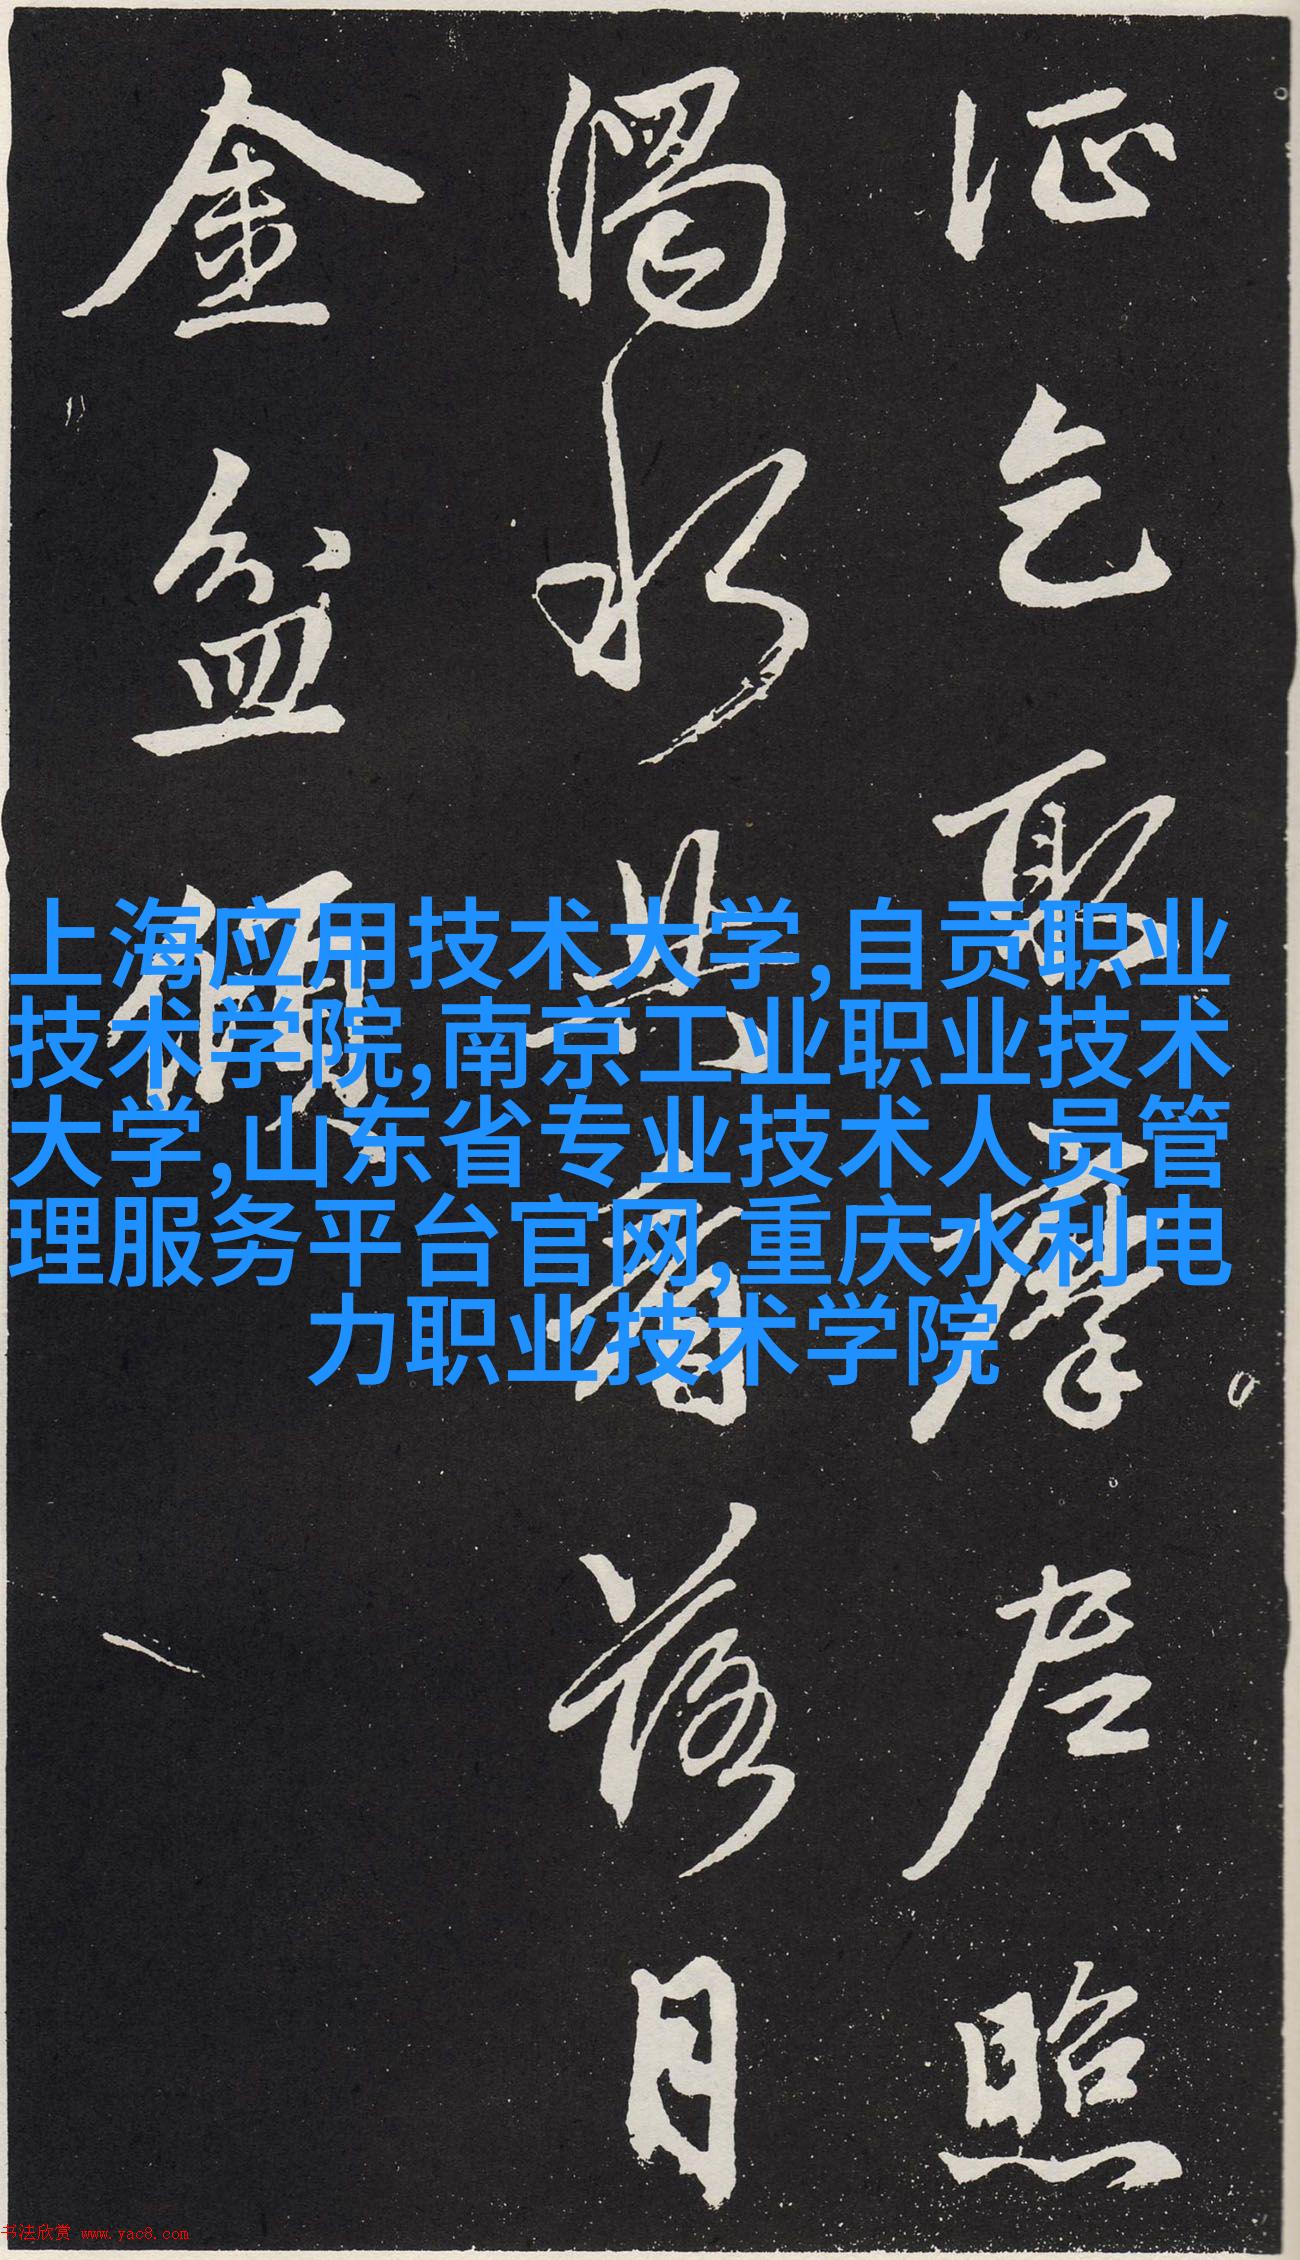 乞取摩尼照
濁水共看落月
金盆傾
上海应用技术大学,自贡职业
技术学院,南京工业职业技术
大学,山东省专业技术人员管
理服务平台官网,重庆水利电
力职业技术学院
书法欣赏 www.yac8.com